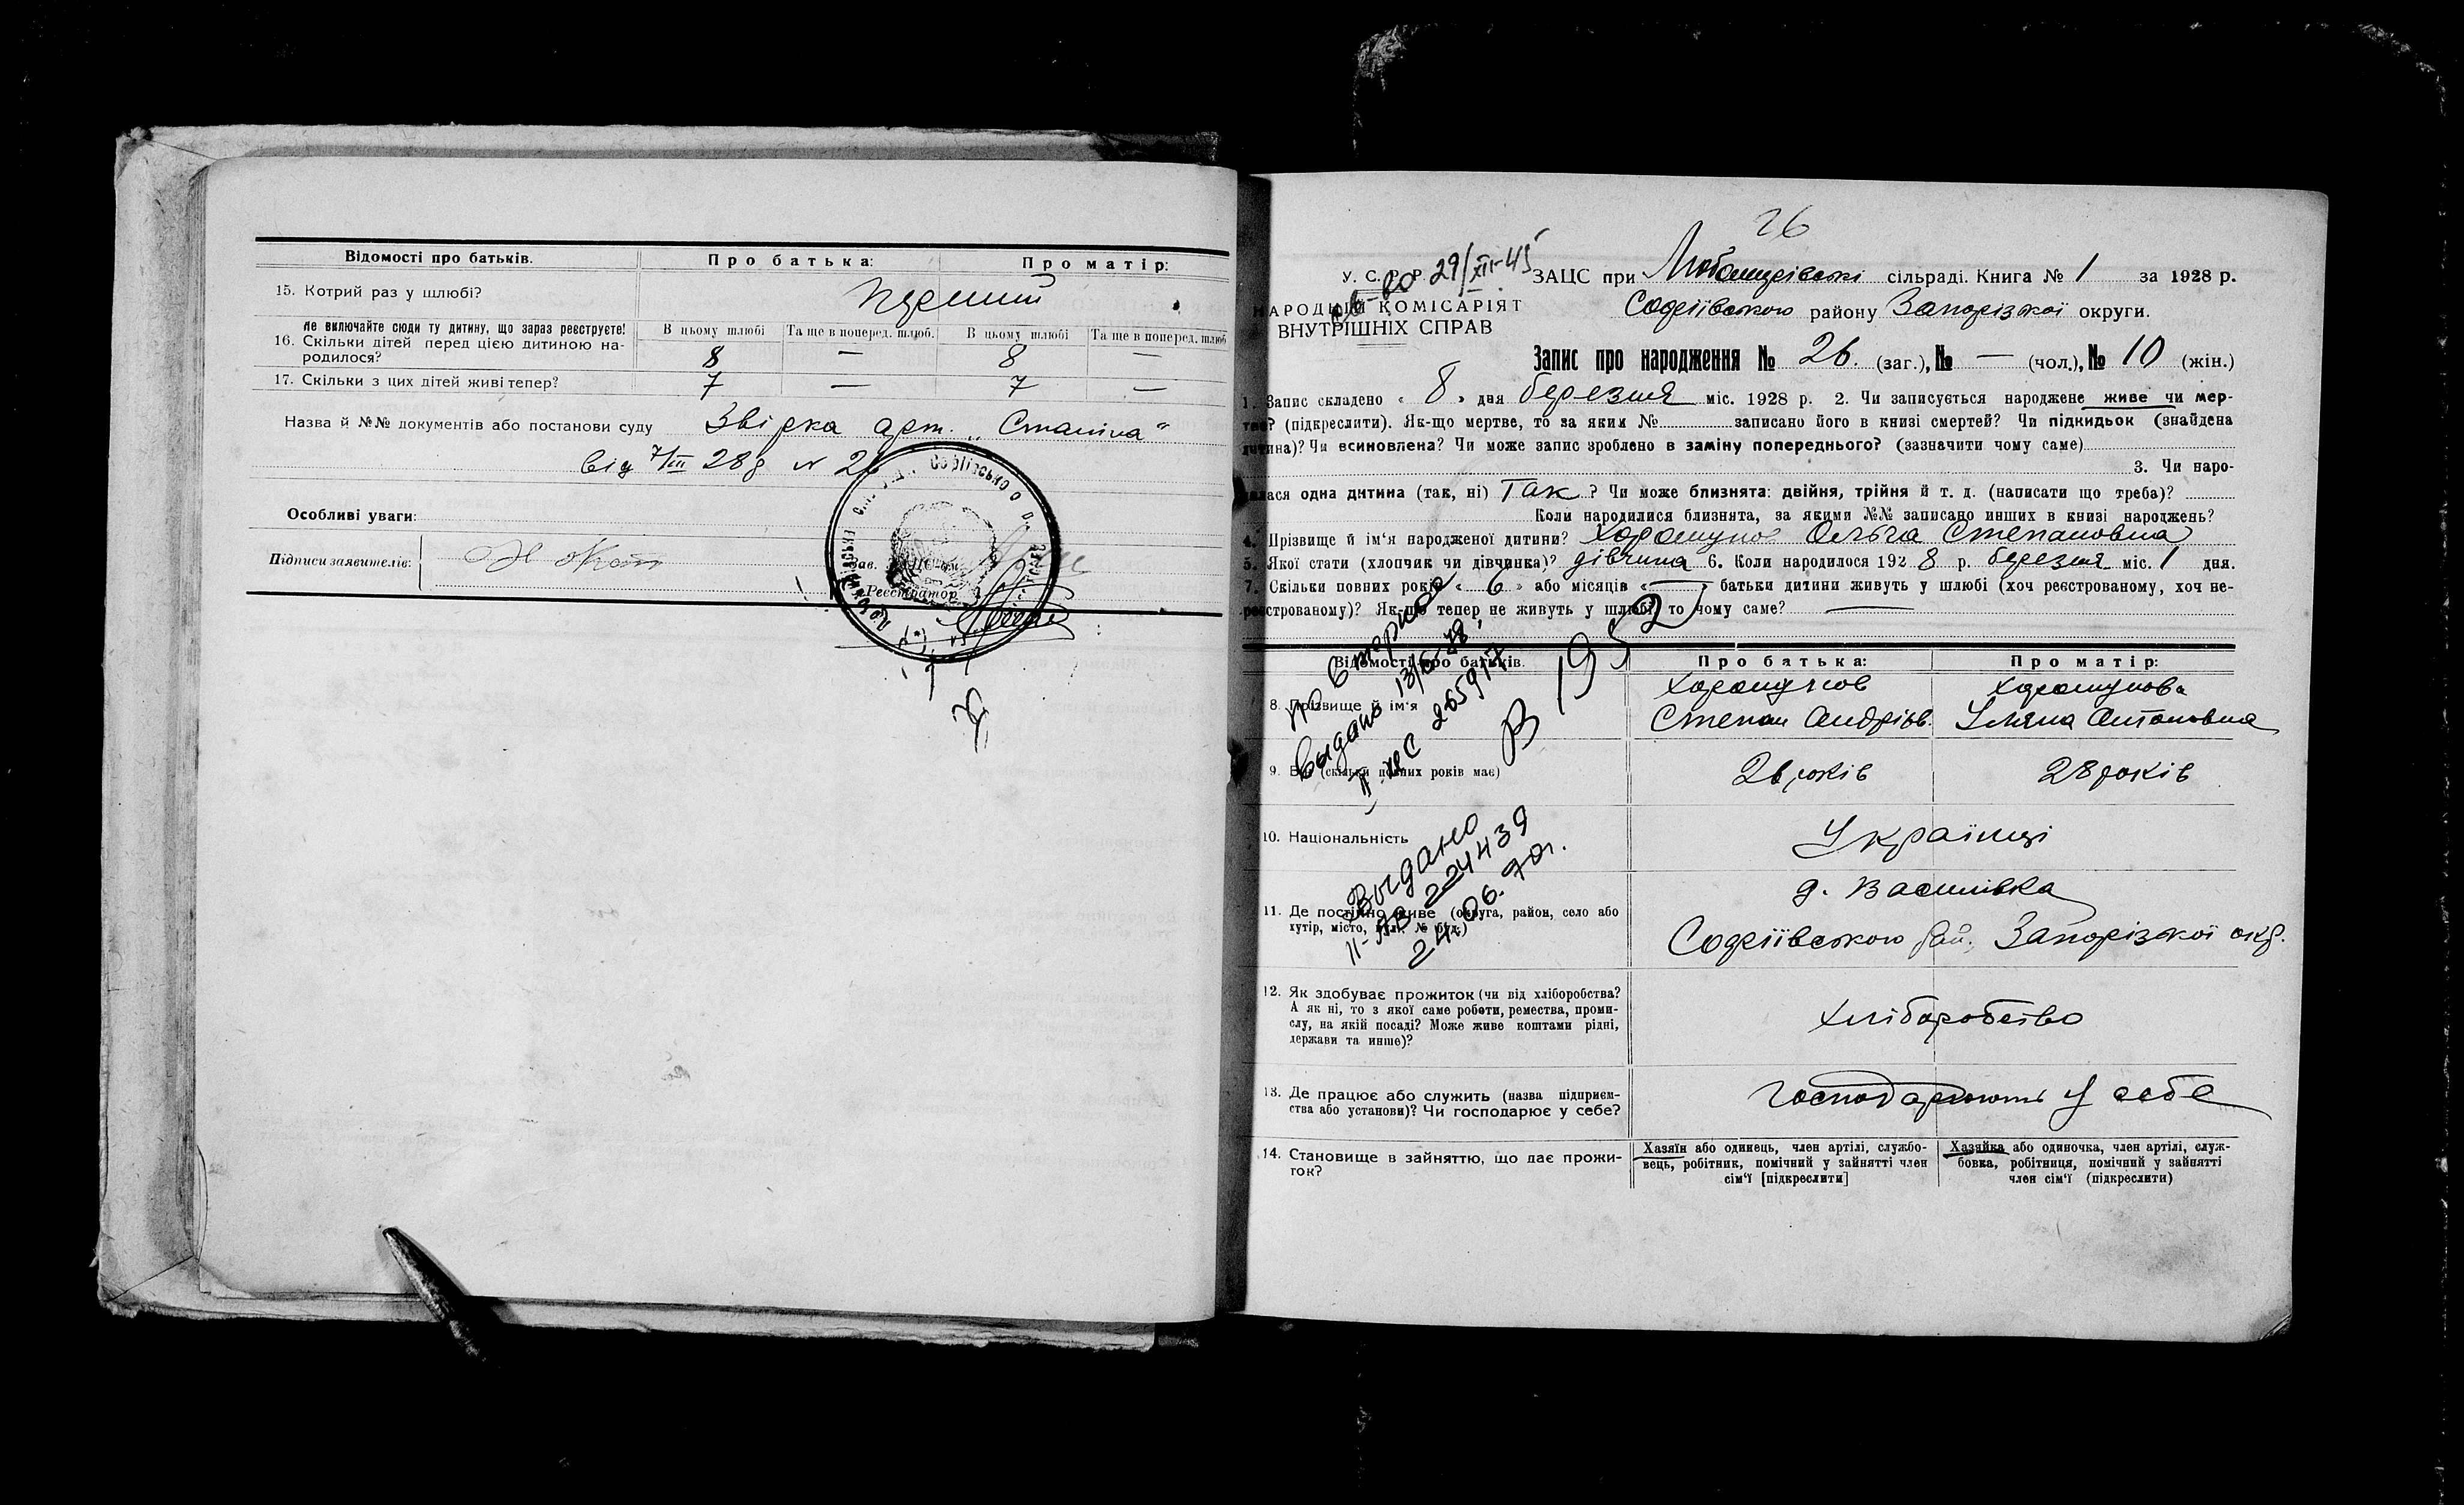 Відомості про батьків. Про батька: Про матір:
15. Котрий раз у шлюбі? перший
Не включайте сюди ту дитину, що зараз реєструєте!
16. Скільки дітей перед цією дитиною на-
родилося?
В цьому шлюбі Та ще в поперед. шлюб. В цьому шлюбі Та ще в поперед. шлюб
8 — 8 —
17. Скільки з цих дітей живі тепер? 7 — 7 —
Назва й №№ документів або постанови суду Звірка арт.
від 7/III 28 р N 26
Особливі уваги:
Підписи заявителів:
Зав.
Реєстратор
26
У. С. Р. Р. 29/XII-45 ЗАЦС при сільраді. Книга № 1 за 1928 р.
НАРОДНІЙ КОМІСАРІЯТ
ВНУТРІШНІХ СПРАВ
Софіївського району Запорізької округи.
Запис про народження № 26. (заг.), № — (чол.), № 10 (жін.)
1. Запис складено « 8 » дня березня міс. 1928 р. 2. Чи записується народжене живе чи мер-
тве? (підкреслити). Як-що мертве, то за яким № записано його в книзі смертей? Чи підкидьок (знайдена
дитина)? Чи всиновлена? Чи може запис зроблено в заміну попереднього? (зазначити чому саме)
3. Чи наро-
дилася одна дитина (так, ні) Так ? Чи може близнята: двійня, трійня й т. д. (написати що треба)?
Коли народилися близнята, за якими №№ записано инших в книзі народжень?
4. Прізвище й ім'я народженої дитини? Ольга Степановна
5. Якої стати (хлопчик чи дівчинка)? дівчина 6. Коли народилося 192 8 р. березня міс. 1 дня.
7. Скільки повних років « 6 » або місяців « — » батьки дитини живуть у шлюбі (хоч реєстрованому, хоч не-
реєстрованому)? Як-що тепер не живуть у шлюбі, то чому саме? —
Відомості про батьків. Про батька: Про матір:
8. Прізвище й ім'я
Степан Андрїев. Уляна Антоновна
9. Вік (скільки повних років має) 26 років 28 років
10. Національність Українці
11. Де постійно живе (округа, район, село або
хутір, місто, вул. № буд.)
д. Василівка
Софіївського рай. Запорізької окр.
12. Як здобуває прожиток (чи від хліборобства?
А як ні, то з якої саме роботи, ремества, проми-
слу, на якій посаді? Може живе коштами рідні,
держави та инше)?
Хліборобство
13. Де працює або служить (назва підприєм-
ства або установи)? Чи господарює у себе?
господарюють у себе
14. Становище в зайняттю, що дає прожи-
ток?
Хазяїн або одинець, член артілі, службо-
вець, робітник, помічний у зайнятті член
сім'ї [підкреслити]
Хазяйка або одиночка, член артілі, служ-
бовка, робітниця, помічний у зайнятті
член сім'ї (підкреслити)
Выдано
II-АВ 224439
24.06.